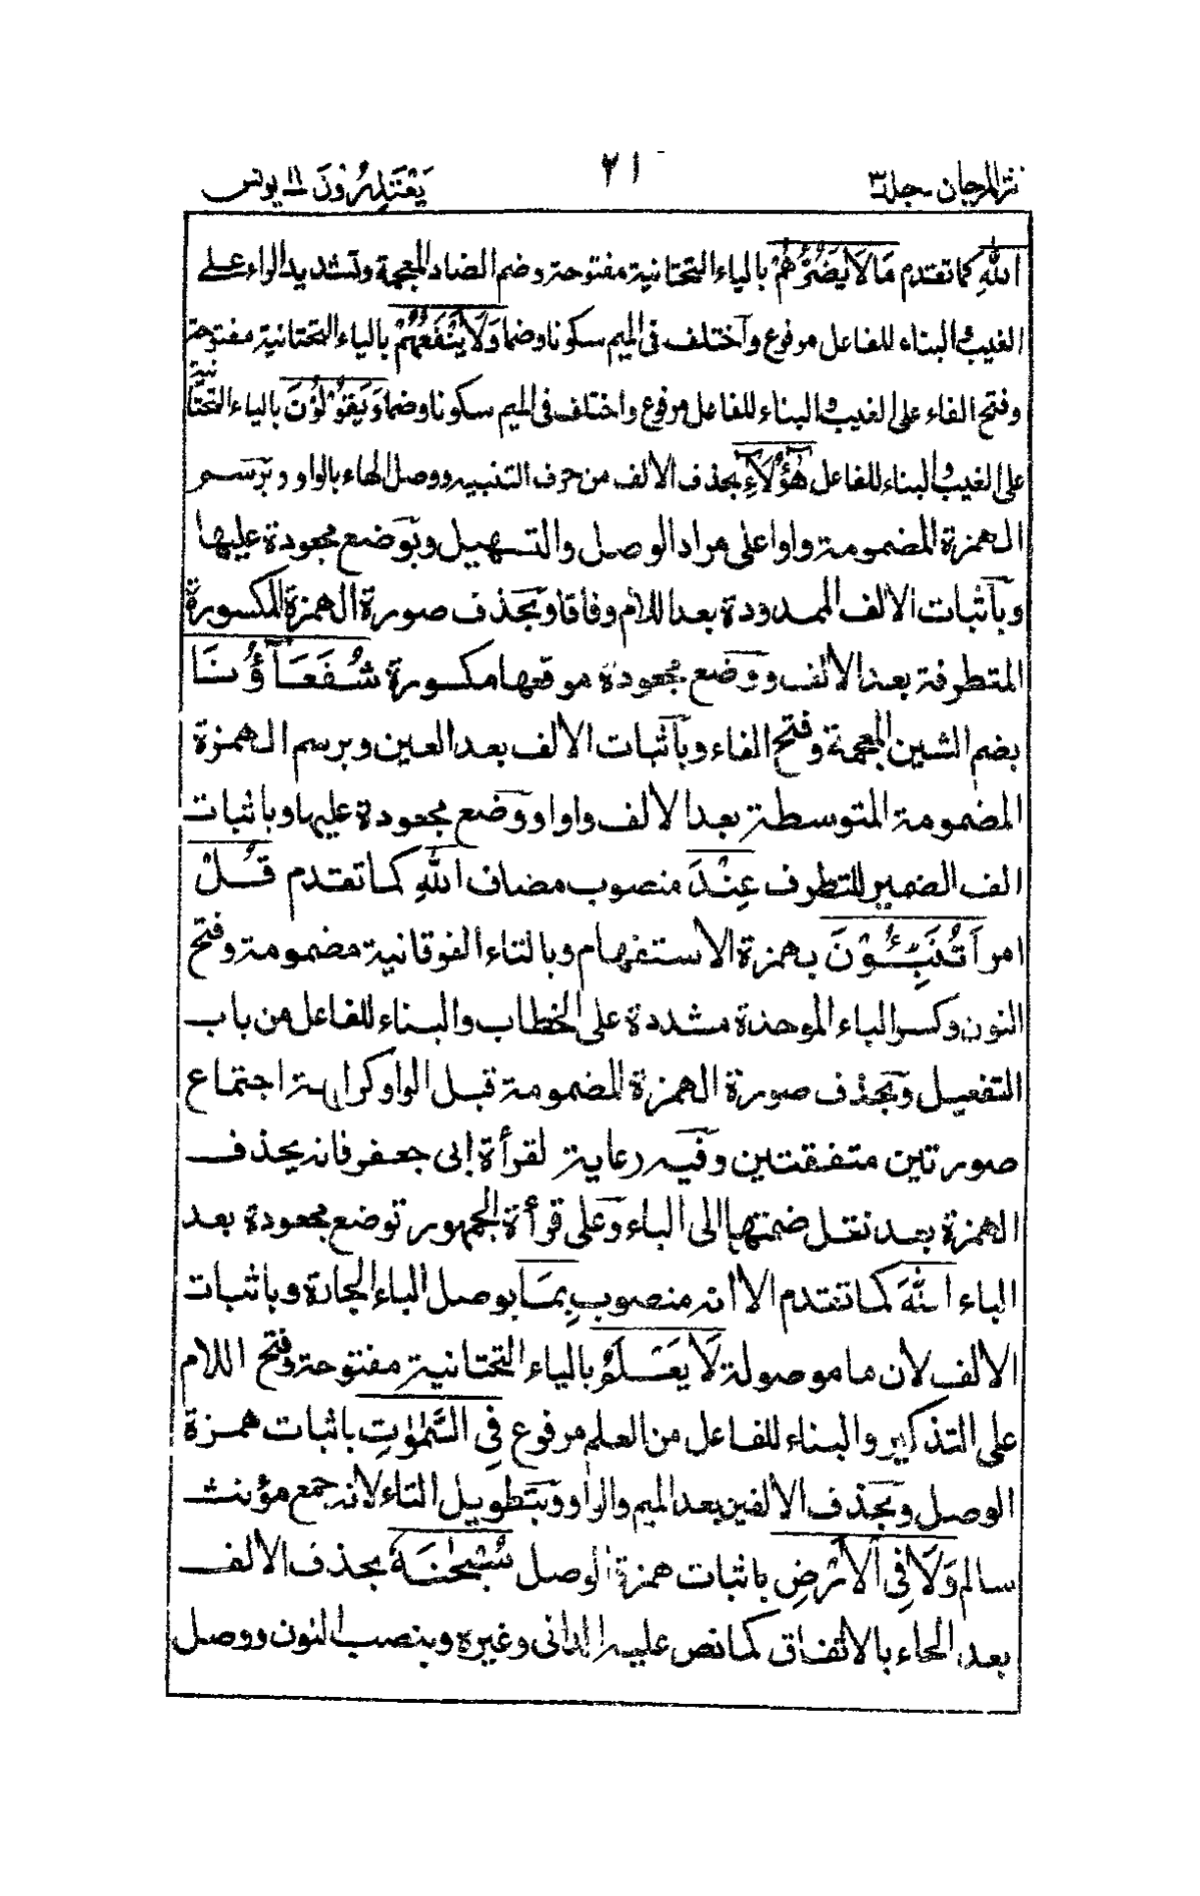 نثر المرجان جلد ٣
٢١
يَعْتَذِرُوْنَ ١١ يونس
اللّٰهِ كما تقدم مَا لَا يَضُرُّهُمْ بالياء التحتانية مفتوحة وضم الضاد المعجمة وتشديد الراء على
الغيب والبناء للفاعل مرفوع واختلف فى الميم سكونا وضما وَلَا يَنْفَعُهُمْ بالياء التحتانية مفتوحة
وفتح الفاء على الغيب والبناء للفاعل مرفوع واختلف فى الميم سكونا وضما وَيَقُوْلُوْنَ بالياء التحتانية
على الغيب والبناء للفاعل هٰؤُلَاءِ بحذف الالف من حرف التنبيه ووصل الهاء بالواو وبرسم
الهمزة المضمومة واوا على مراد الوصل والتسهيل وبوضع مجعودة عليها
وباثبات الالف الممدودة بعد اللام وفاقا وبحذف صورة الهمزة المكسورة
المتطرفة بعد الالف ووضع مجعودة موقعها مكسورة شُفَعَآؤُنَا
بضم الشين المعجمة وفتح الفاء وباثبات الالف بعد العين وبرسم الهمزة
المضمومة المتوسطة بعد الالف واوا ووضع مجعودة عليها وباثبات
الف الضمير للتطرف عِنْدَ منصوب مضاف اللّٰهِ كما تقدم قُلْ
امر اَتُنَبِّـُٔوْنَ بهمزة الاستفهام وبالتاء الفوقانية مضمومة وفتح
النون وكسر الباء الموحدة مشددة على الخطاب والبناء للفاعل من باب
التفعيل وبحذف صورة الهمزة المضمومة قبل الواو كراهة اجتماع
صورتين متفقتين وفيه رعاية لقرأة ابى جعفر فانه يحذف
الهمزة بعد نقل ضمتها الى الباء وعلى قرأة الجمهور توضع مجعودة بعد
الباء اللّٰهَ كما تقدم الا انه منصوب بِمَا بوصل الباء الجارة وباثبات
الالف لان ما موصولة لَا يَعْلَمُ بالياء التحتانية مفتوحة وفتح اللام
على التذكير والبناء للفاعل من العلم مرفوع فِى السَّمٰوٰتِ باثبات همزة
الوصل وبحذف الالفين بعد الميم والواو وبتطويل التاء لانه جمع مؤنث
سالم وَلَا فِى الْاَرْضِ باثبات همزة الوصل سُبْحٰنَهٗ بحذف الالف
بعد الحاء بالاتفاق كما نص عليه الدانى وغيره وبنصب النون ووصل